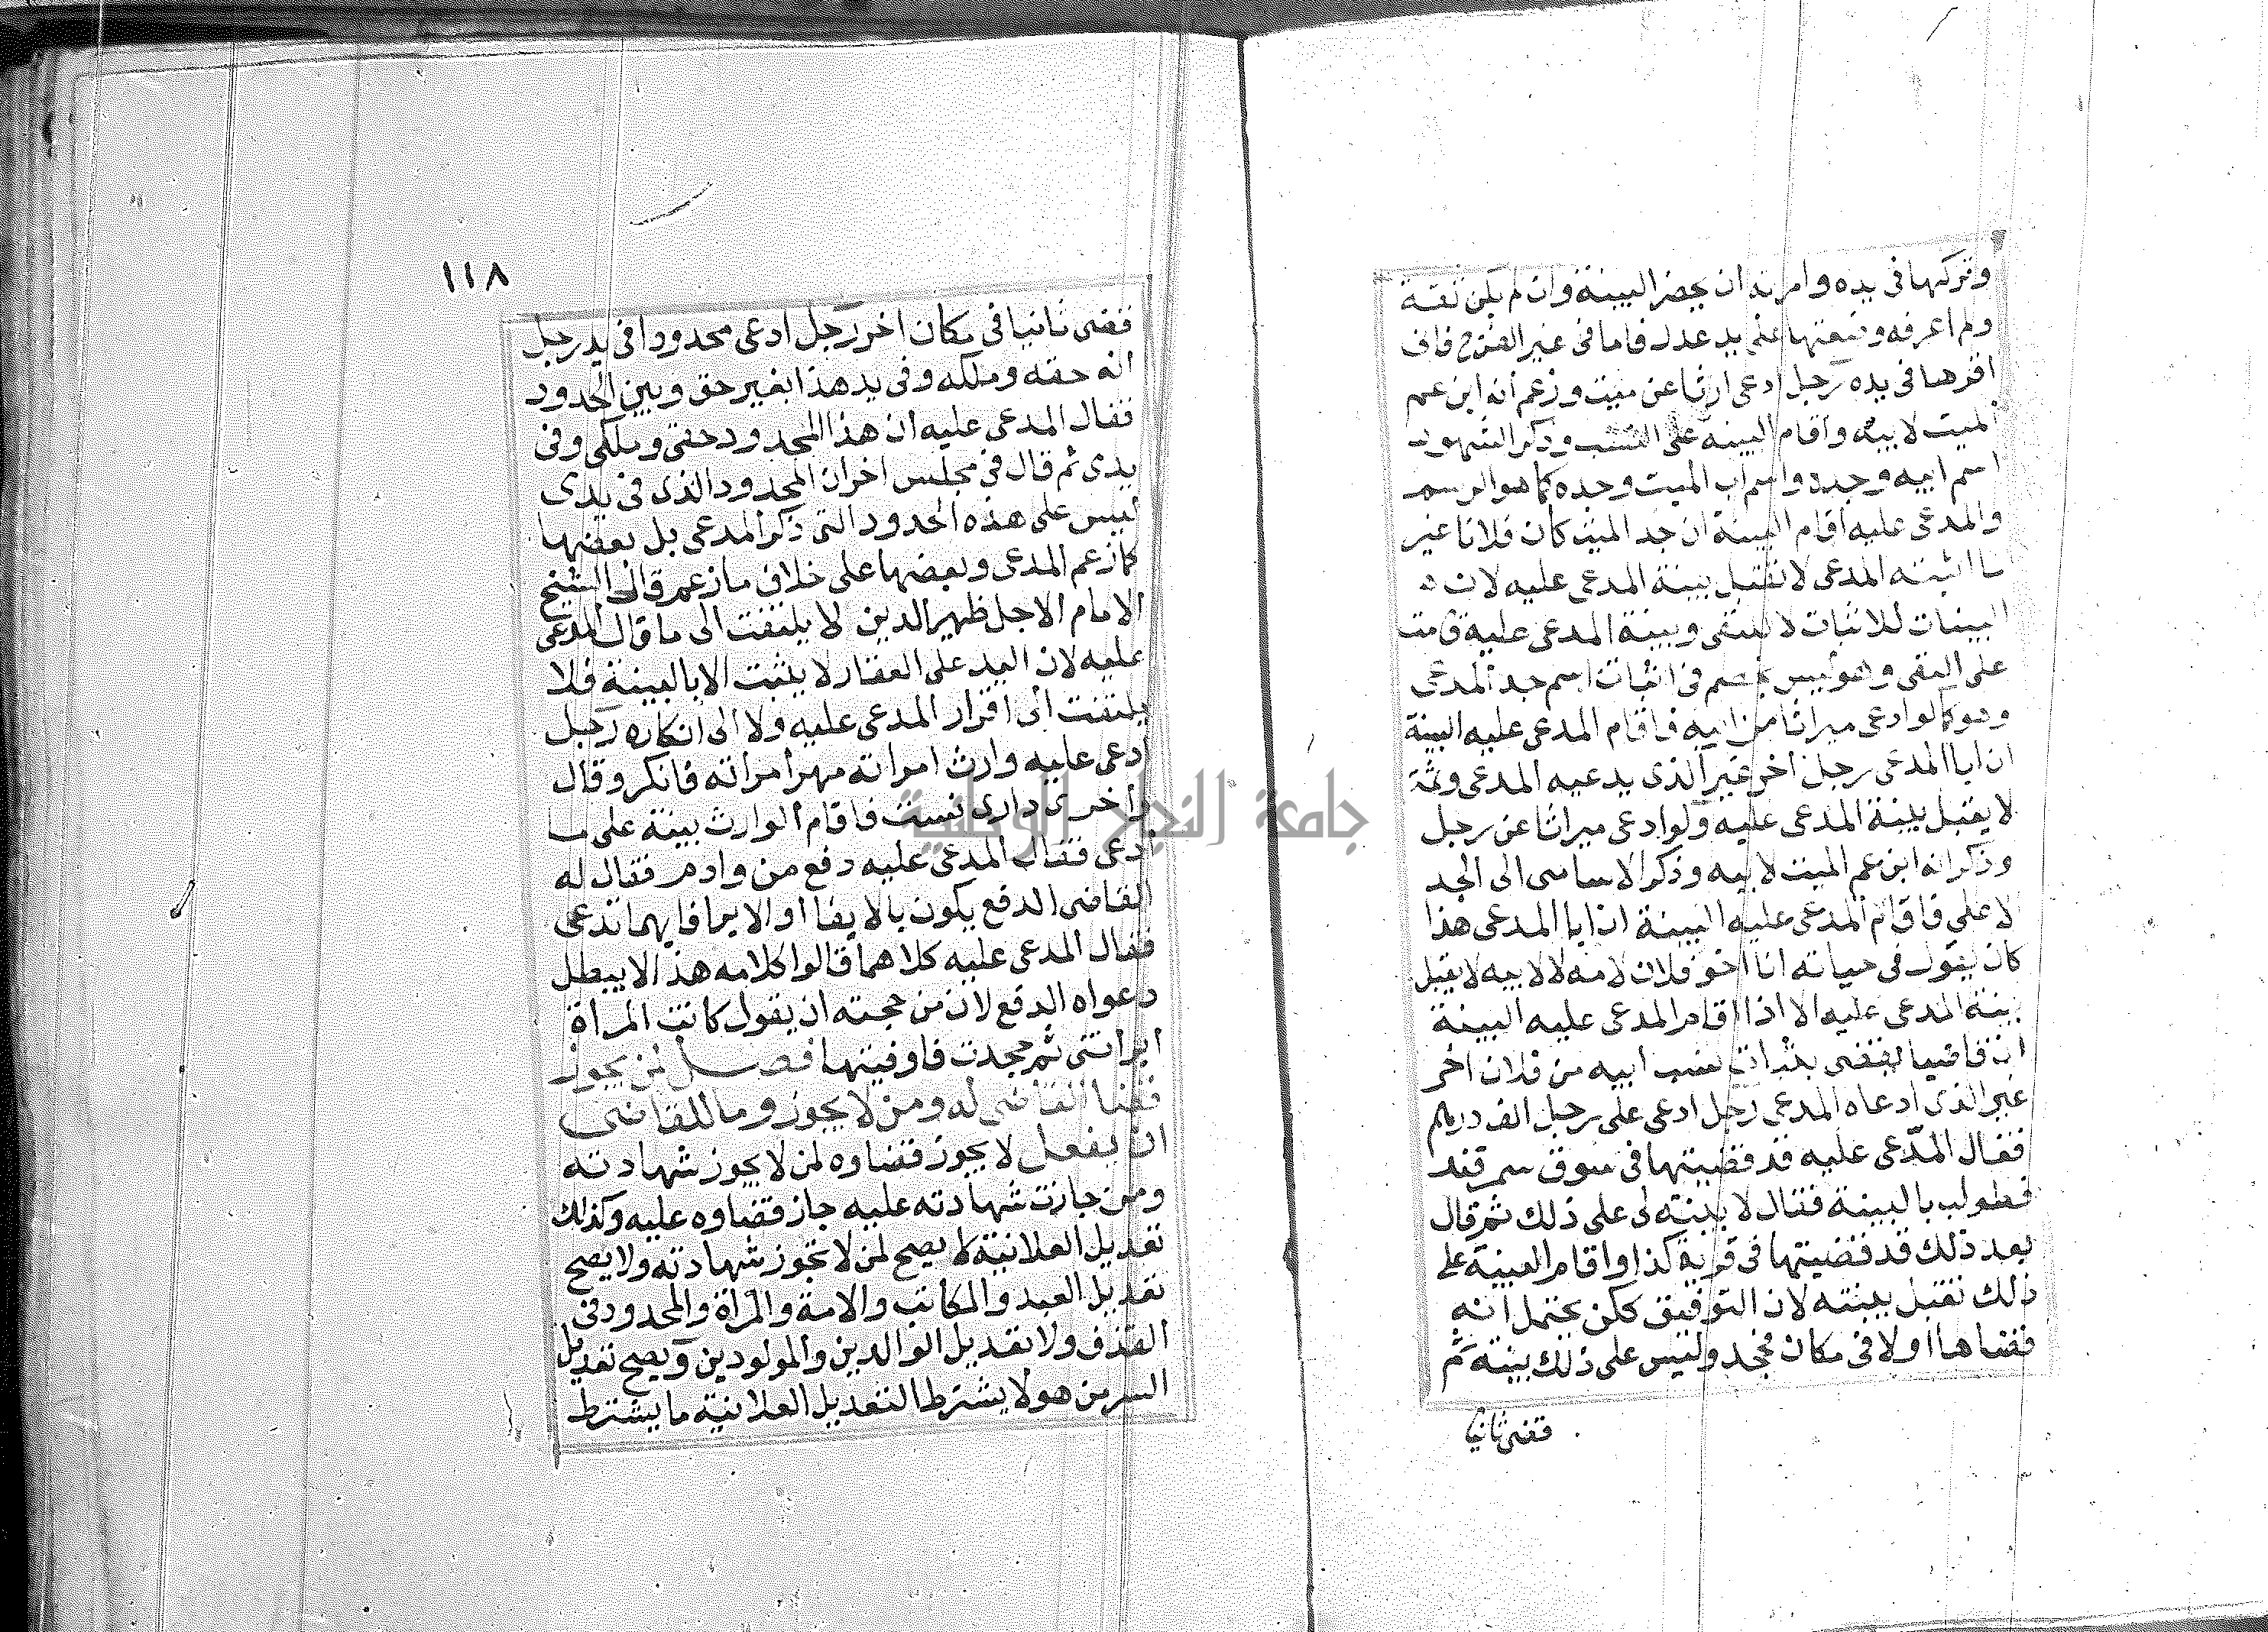 وتركتها في يده وامرته ان يحضر البينة وان لم يكن ثقة
ولم اعرفه وضعتها على يد عدل فاما في غير الفروج فاني
اقرها في يده رجل ادعى ارثا عن ميت وزعم انه ابن عم
الميت لابيه واقام البينة على النسب وذكر الشهود
اسم ابيه وجده واسم اب الميت وجده كما هو الرسم
والمدعى عليه اقام البينة ان جد الميت كان فلانا غير
ما اثبته المدعى لا تقبل بينة المدعى عليه لان
البينات للاثبات لا للنفى وبينة المدعى عليه قامت
على النفى وهو ليس بخصم في اثبات اسم جد المدعى
وهو كما لو ادعى ميراثا من ابيه فاقام المدعى عليه البينة
ان ابا المدعى رجل اخر غير الذى يدعيه المدعى وثمة
لا يقبل بينة المدعى عليه ولو ادعى ميراثا عن رجل
وذكر انه ابن عم الميت لابيه وذكر الاسامى الى الجد
لا على فاقام المدعى عليه البينة ان ابا المدعى هذا
كان يقول في حياته انا اخو فلان لامه لا لابيه لا يقبل
بينة المدعى عليه الا اذا اقام المدعى عليه البينة
ان قاضيا قضى باثبات نسب ابيه من فلان اخر
غير الذى ادعاه المدعى رجل ادعى على رجل الف درهم
فقال المدعى عليه قد قضيتها في سوق سمرقند
فطولب بالبينة فقال لا بينة لى على ذلك ثم قال
بعد ذلك قد قضيتها في قرية كذا واقام البينة على
ذلك تقبل بينته لان التوفيق ممكن يحتمل انه
قضاها اولا في مكان فجحد وليس على ذلك بينة ثم
قضى ثانيا
١١٨
قضى ثانيا في مكان اخر رجل ادعى محدودا في يد رجل
انه حقه وملكه وفى يد هذا بغير حق وبين الحدود
فقال المدعى عليه ان هذا المحدود حقى وملكى وفى
يدى ثم قال في مجلس اخر ان المحدود الذى في يدى
ليس على هذه الحدود التى ذكر المدعى بل بعضها
كما زعم المدعى وبعضها على خلاف ما زعم قال الشيخ
الامام الاجل ظهير الدين لا يلتفت الى ما قال المدعى
عليه لان اليد على العقار لا يثبت الا بالبينة فلا
يلتفت الى اقرار المدعى عليه ولا الى انكاره رجل
ادعى عليه وارث امراته مهر امراته فانكر وقال
فاقام الوارث بينة على ما
ادعى فقال المدعى عليه دفع من وادم فقال له
القاضى الدفع يكون بالايفا او الابرا فايهما تدعى
فقال المدعى عليه كلاهما قالوا كلامه هذا لا يبطل
دعواه الدفع لان من حجته ان يقول كانت المراة
ابراتنى ثم جحدت فاوفيتها فصل لمن يجوز
قضا القاضى له ومن لا يجوز وما للقاضى
ان يفعل لا يجوز قضاوه لمن لا يجوز شهادته
ومن جازت شهادته عليه جاز قضاوه عليه وكذلك
تعديل العلانية لا يصح لمن لا تجوز شهادته ولا يصح
تعديل العبد والمكاتب والامة والمراة والمحدود في
القذف ولا تعديل الوالدين والمولودين ويصح تعديل
السر من هولا يشترط التعديل العلانية ما يشترط
جامعة النجاح الوطنية